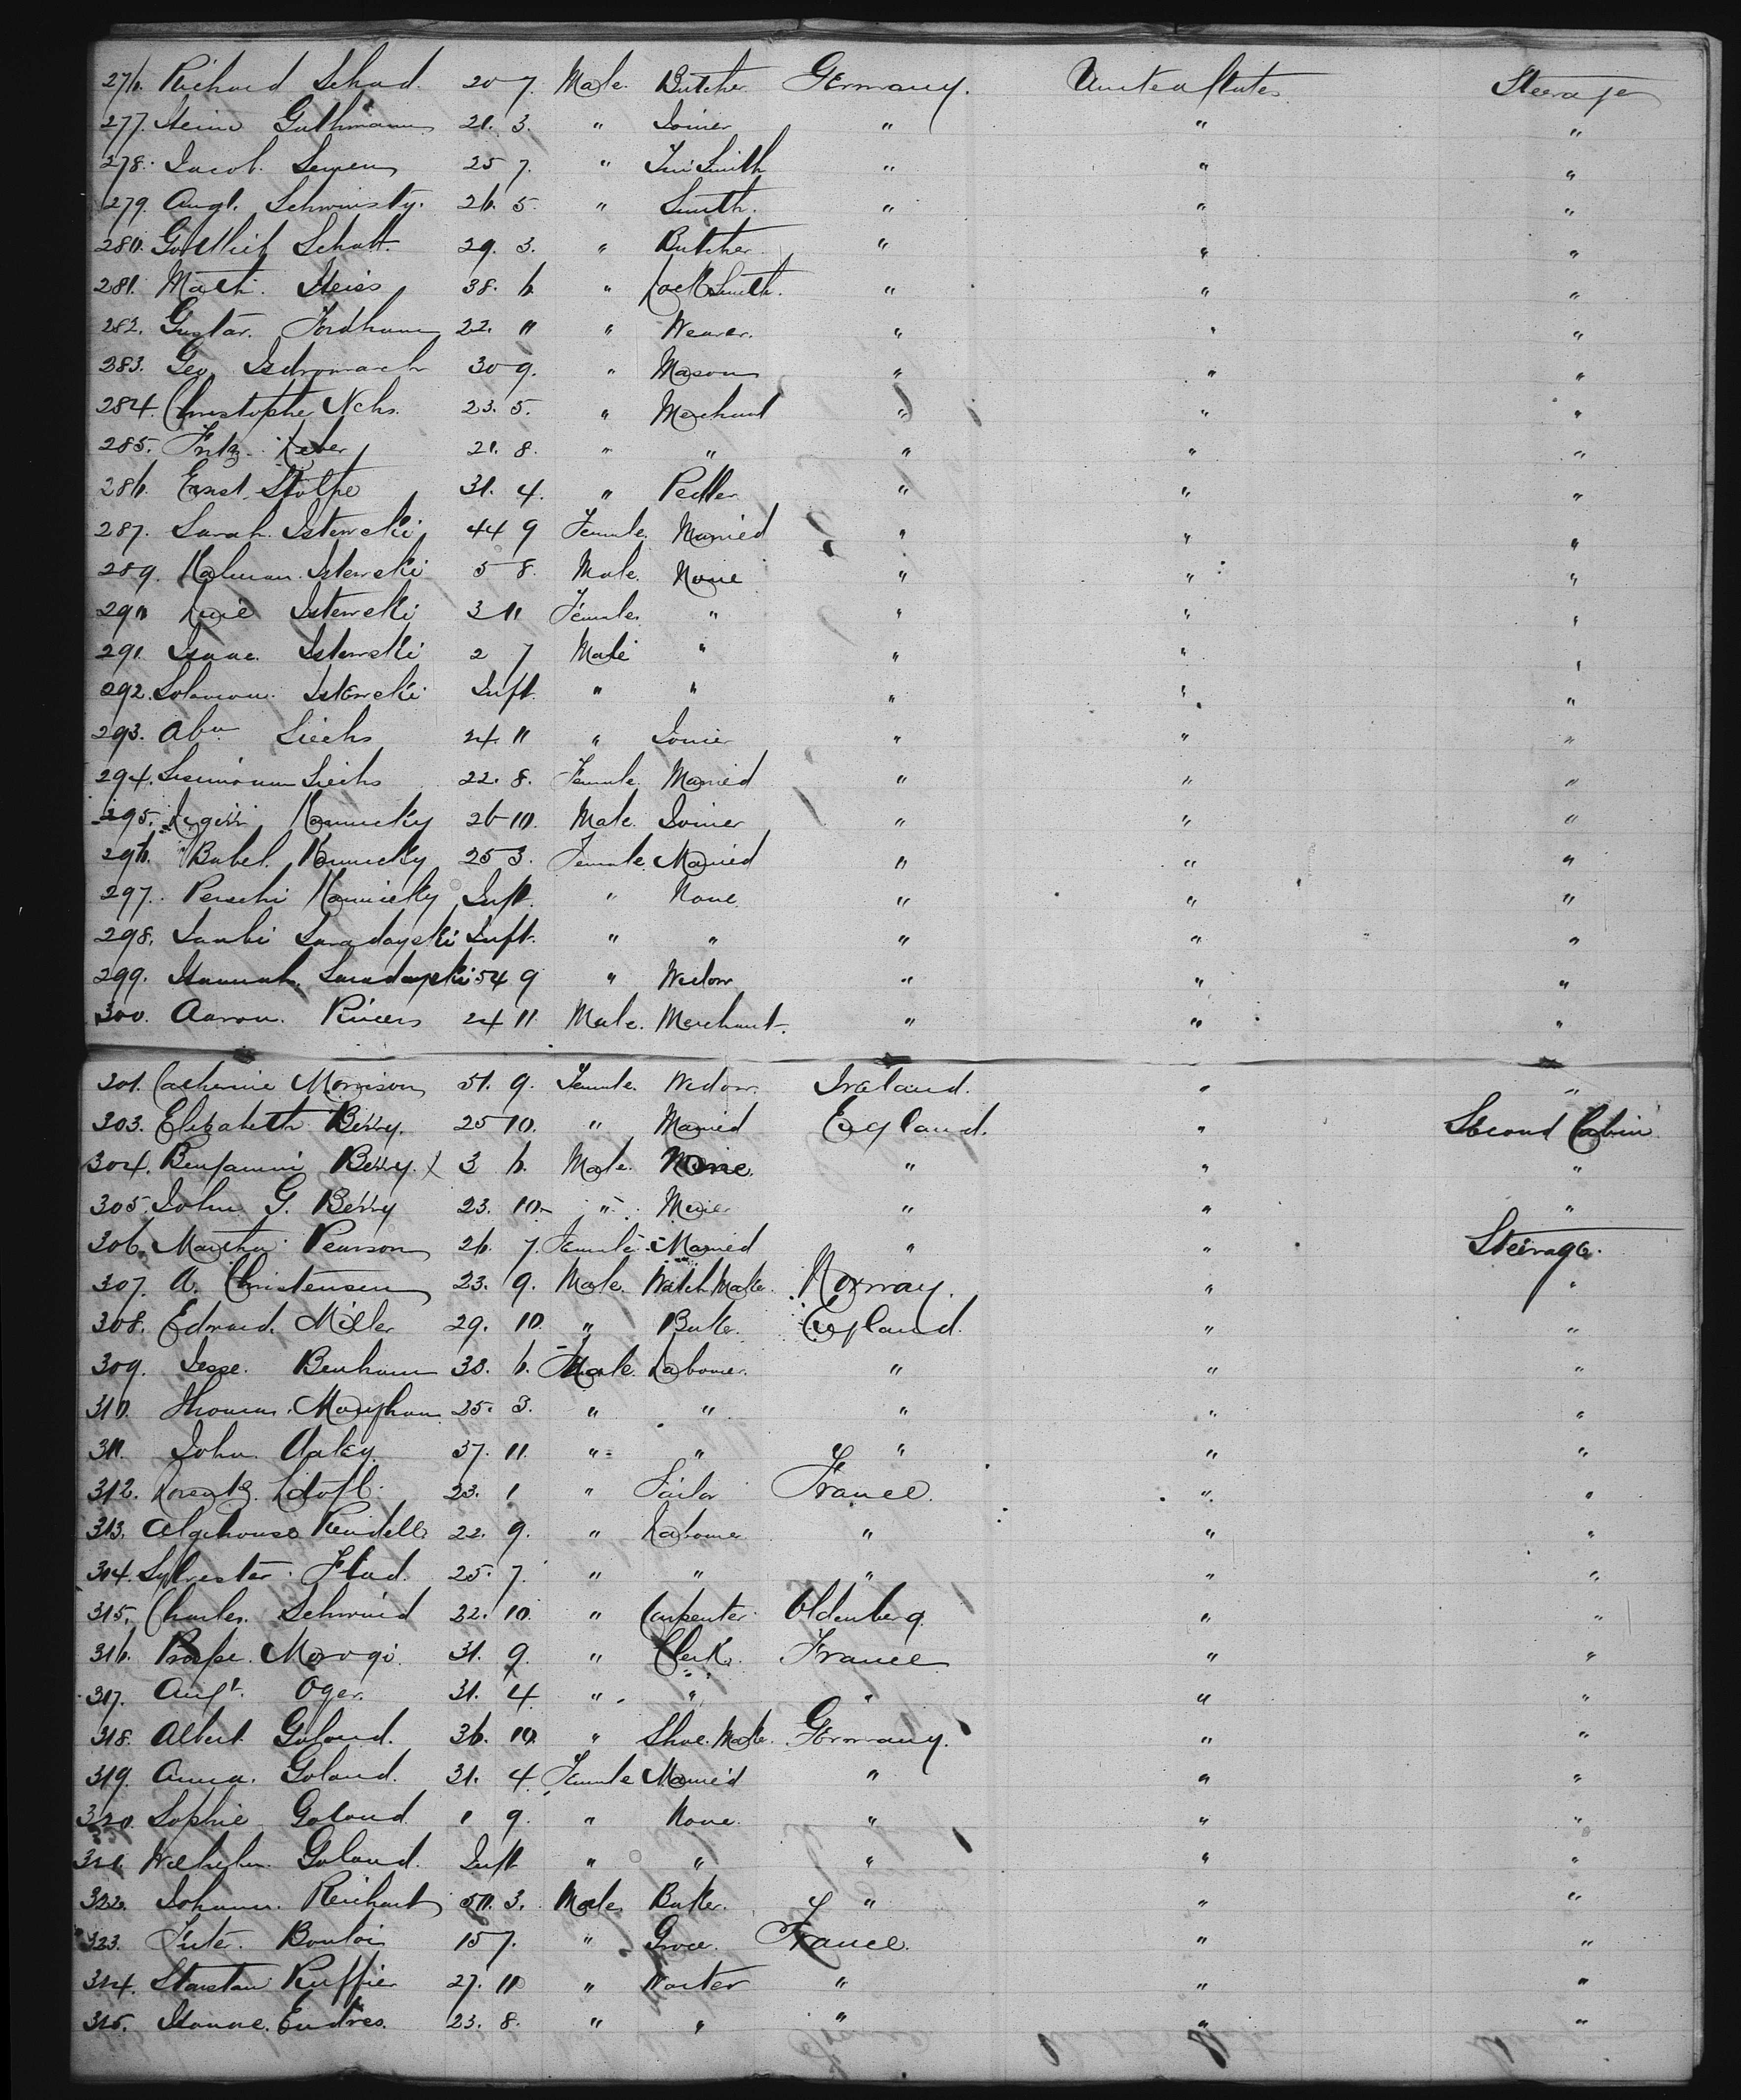 276. Richard Schad. 20 7. Male. Butcher Germany. United States Steerage
277. Heinr Guthmann 21. 3. " Joiner " " "
278. Jacob 25 7. " Tin Smith " " "
279. Augt. 26. 5. " Smith. " " "
280. Gottlieb Schatt. 29. 3. " Butcher " " "
281. Math. Heiss 38. 6. " Lock Smith. " " "
282. Gustav. 22. 11 " Weaver. " " "
283. Geo 30 9. " Mason " " "
284. Christophe Nehs. 23. 5. " Merchant " " "
285. Fritz. 21. 8. " " " " "
286. Ernst. Stolpe 31. 4. " Pedler " " "
287. Sarah. Isterveki 44 9 Female. Married " " "
289. Kalman. Isterveki 5 8. Male. None " " "
290 Isterveki 3 11 Female. " " " "
291. Isaac. Isterveki 2 7 Male " " " "
292. Solomon. Isterveki Inft. " " " " "
293. Abm Siechs 24. 11 " Joiner " " "
294. Siechs 22. 8. Female. Married " " "
295. 26 10. Male. Joiner " " "
296. Babel. 25 3. Female. Married " " "
297. Inft. " None. " " "
298. Inft. " " " " "
299. Hannah. 54 9 " Widow " " "
300. Aaron. 24 11 Male. Merchant. " " "
301. Catherine Morrison 51. 9. Female. Widow. Ireland. " "
303. Elizabeth Berry. 25 10. " Married England. " Second Cabin
304. Benjamin Berry. X 3 6. Male. None. " " "
305. John G. Berry 23. 10 " Miner " " "
306. Martha Pearson 26. 7. Female. Married " " Steerage.
307. A. Christensen 23. 9. Male. Watch Make. Norway. " "
308. Edward. Miller 29. 10. " Bake. England. " "
309. Jesse. Benham 38. 6. Male. Labourer. " " "
310. Thomas. Maugham 25. 3. " " " " "
311. John 37. 11. " " " " "
312. Lorentz. 23. 1 " Tailor France. " "
313. 22. 9. " Labourer " " "
314. Sylvester. 25. 7. " " " " "
315. Charles. Schwind 32. 10. " Carpenter Oldenberg. " "
316. 31. 9. " Clerk. France " "
317. Augt. Oger. 31. 4 " " " " "
318. Albert. Goland. 36. 10. " Shoe. Make. Germany. " "
319. Anna. Goland. 31. 4. Female Married " " "
320. Sophie Goland 1 9. " None. " " "
321. Wilhelm. Goland. Inft " " " " "
322. Johann. Reichart 50. 3. Male. Baker. " " "
323. 15 7. " Groce. France. " "
324. Ruffier 27. 10 " Waiter " " "
325. Endres. 23. 8. " " " " "